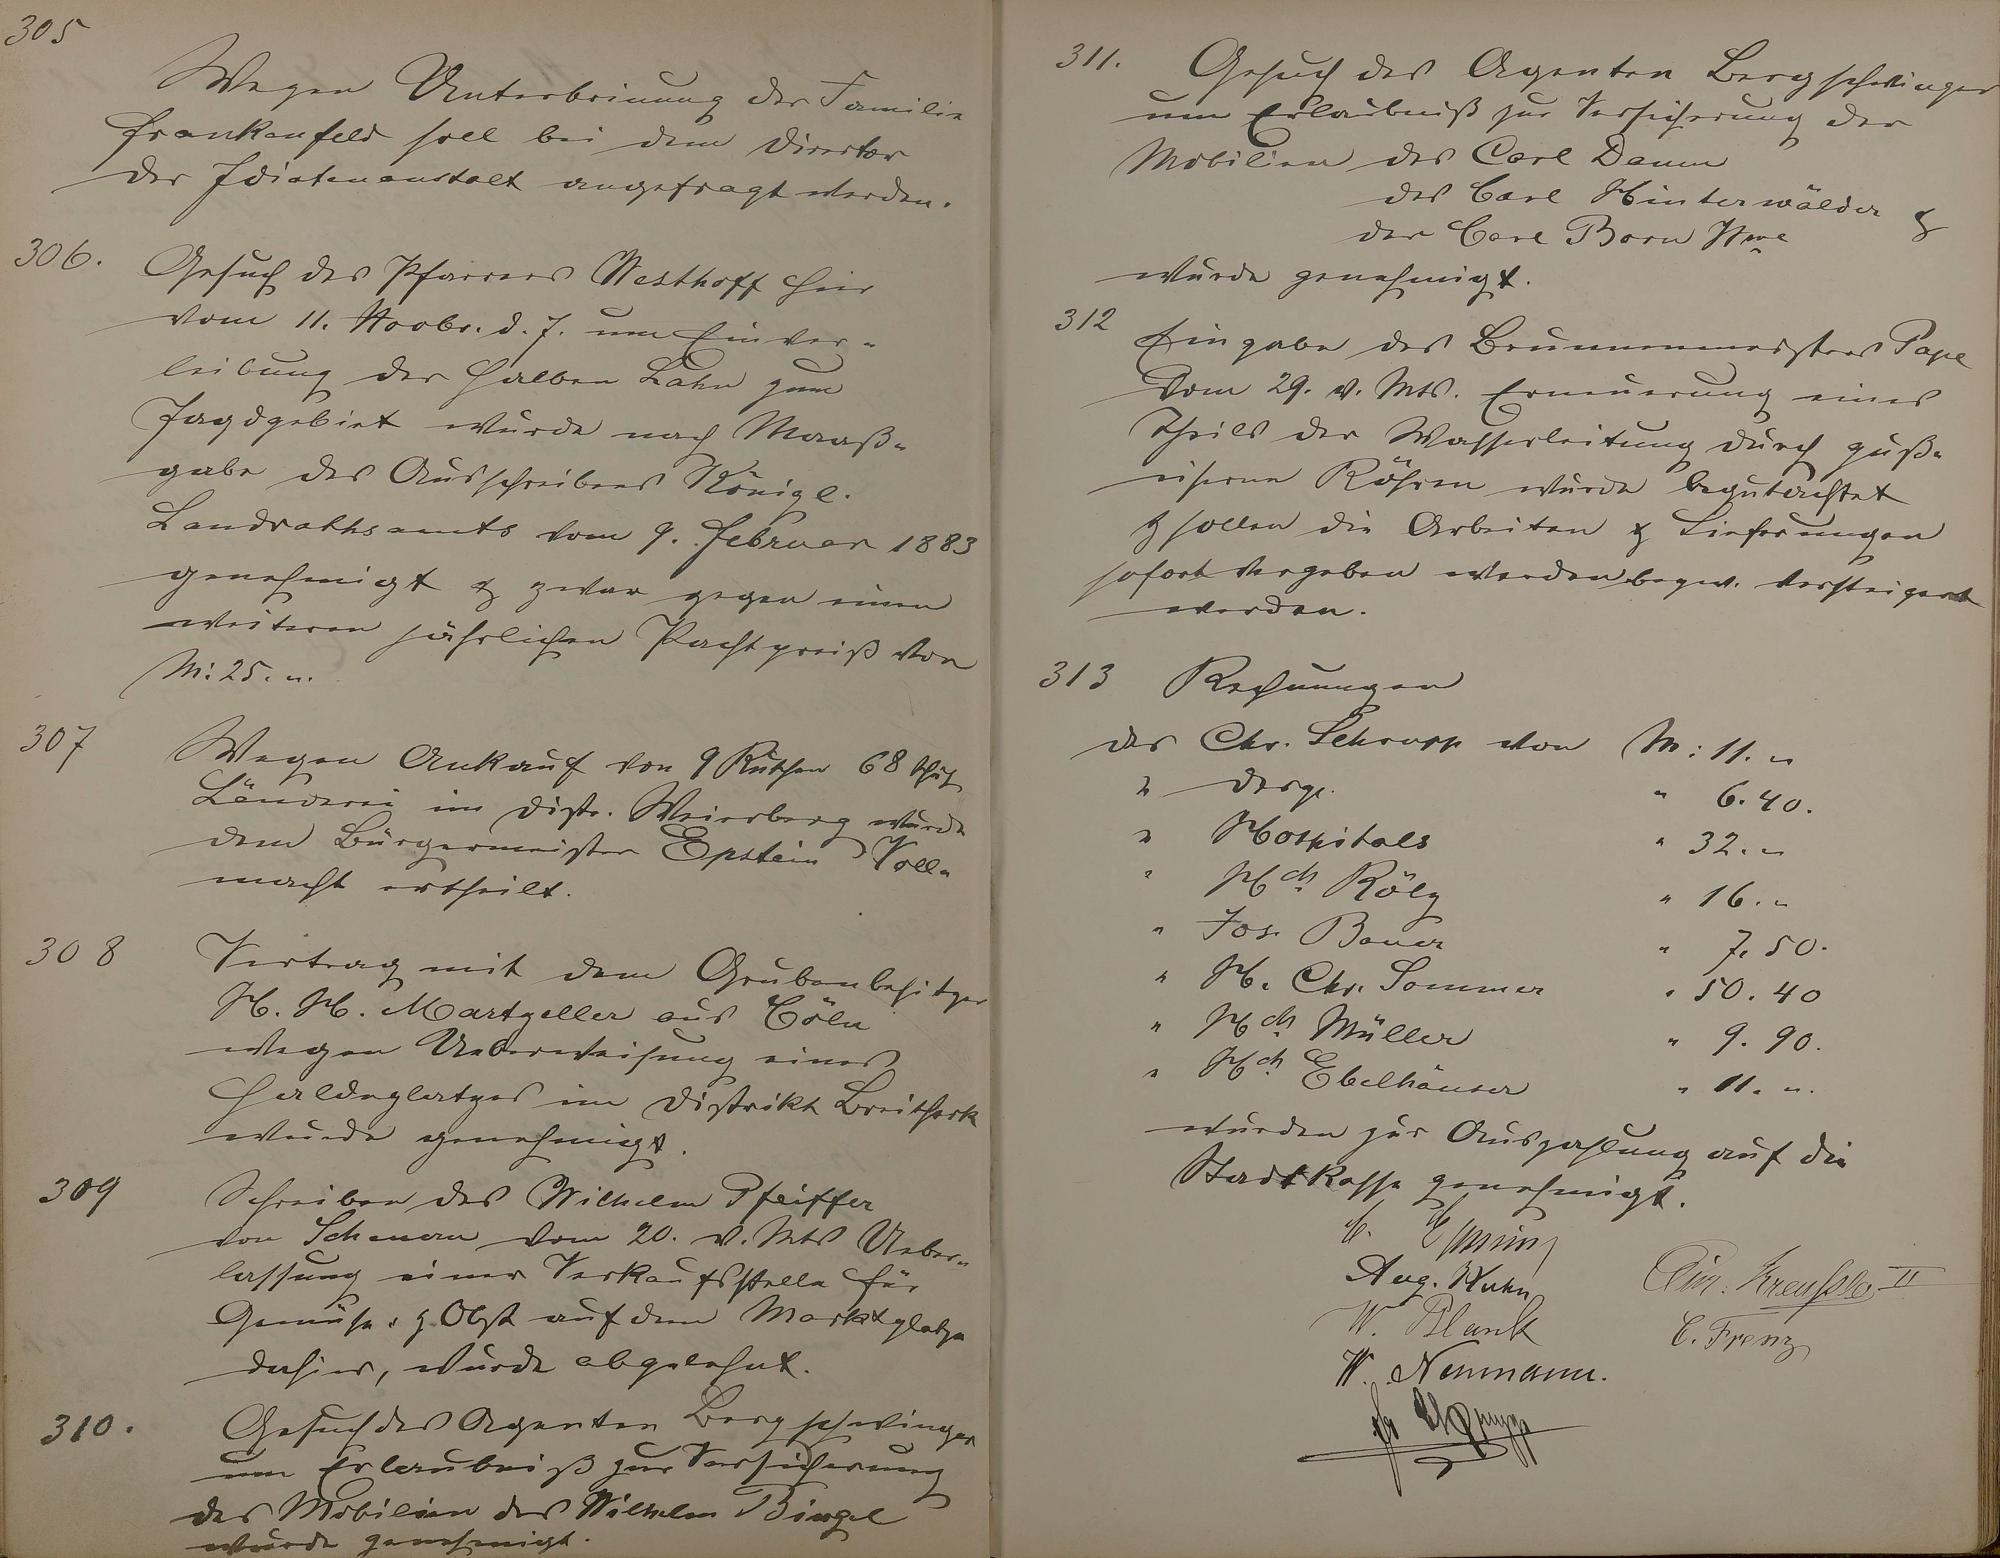 305
Wegen Unterbringung der Familie
Frankenfeld soll bei dem Director
der Idiotenanstalt angefragt werden.
306. Gesuch des Pfarrers Westhoff hier
vom 11. Novbr. d. J. um Einver-
leibung der halben Lahn zum
Jagdgebiet wurde nach Maaß-
gabe des Ausschreibens Königl.
Landrathsamts vom 9. Februar 1883
genehmigt & zwar gegen einen
weiteren jährlichen Pachtpreiß von
M: 25. "
307 Wegen Ankauf von 9 Ruthen 68 Schuh
Länderei im Distr. Weierberg wurde
dem Bürgermeister Epstein Voll-
macht ertheilt.
308 Vertrag mit dem Grubenbesitzer
H. H. Martzeller aus Cöln
wegen Ueberweisung eines
Haldeplatzes im Distrikt
wurde genehmigt.
309 Schreiben des Wilhelm Pfeiffer
von Scheuern vom 20. v. Mts Ueber-
lassung einer Verkaufsstelle für
Gemüse & Obst auf dem Marktplatze
dahier, wurde abgelehnt.
310. Gesuch des Agenten Bergschwinger
um Erlaubniß zur Versicherung
der Mobilien des Wilhelm Bingel
wurde genehmigt.
311. Gesuch des Agenten Bergschwinger
um Erlaubniß zur Versicherung der
Mobilien des Carl Damm
des Carl Hinterwälder &
der Carl Born Wwe
wurde genehmigt.
312 Eingabe des Brunnenmeisters Pape
vom 29. v. Mts. Erneuerung eines
Theils der Wasserleitung durch guß-
eiserne Röhren wurde begutachtet
& sollen die Arbeiten & Lieferungen
sofort vergeben werden bezw. versteigert
werden.
313 Rechnungen
des Chr. Schrupp von M: 11. "
" desgl. " 6. 40.
" Hospitals " 32. "
" Hch Rölz " 16. "
" Jos. Bauer " 7. 50.
" H. Chr. Sommer " 50. 40
" Hch Müller " 9. 90.
" Hch Ebelhäuser " 11. "
wurden zur Auszahlung auf die
Stadtkasse genehmigt.
C.
Aug. Kuhn
W. Blank
C. Frenz
W. Neumann.